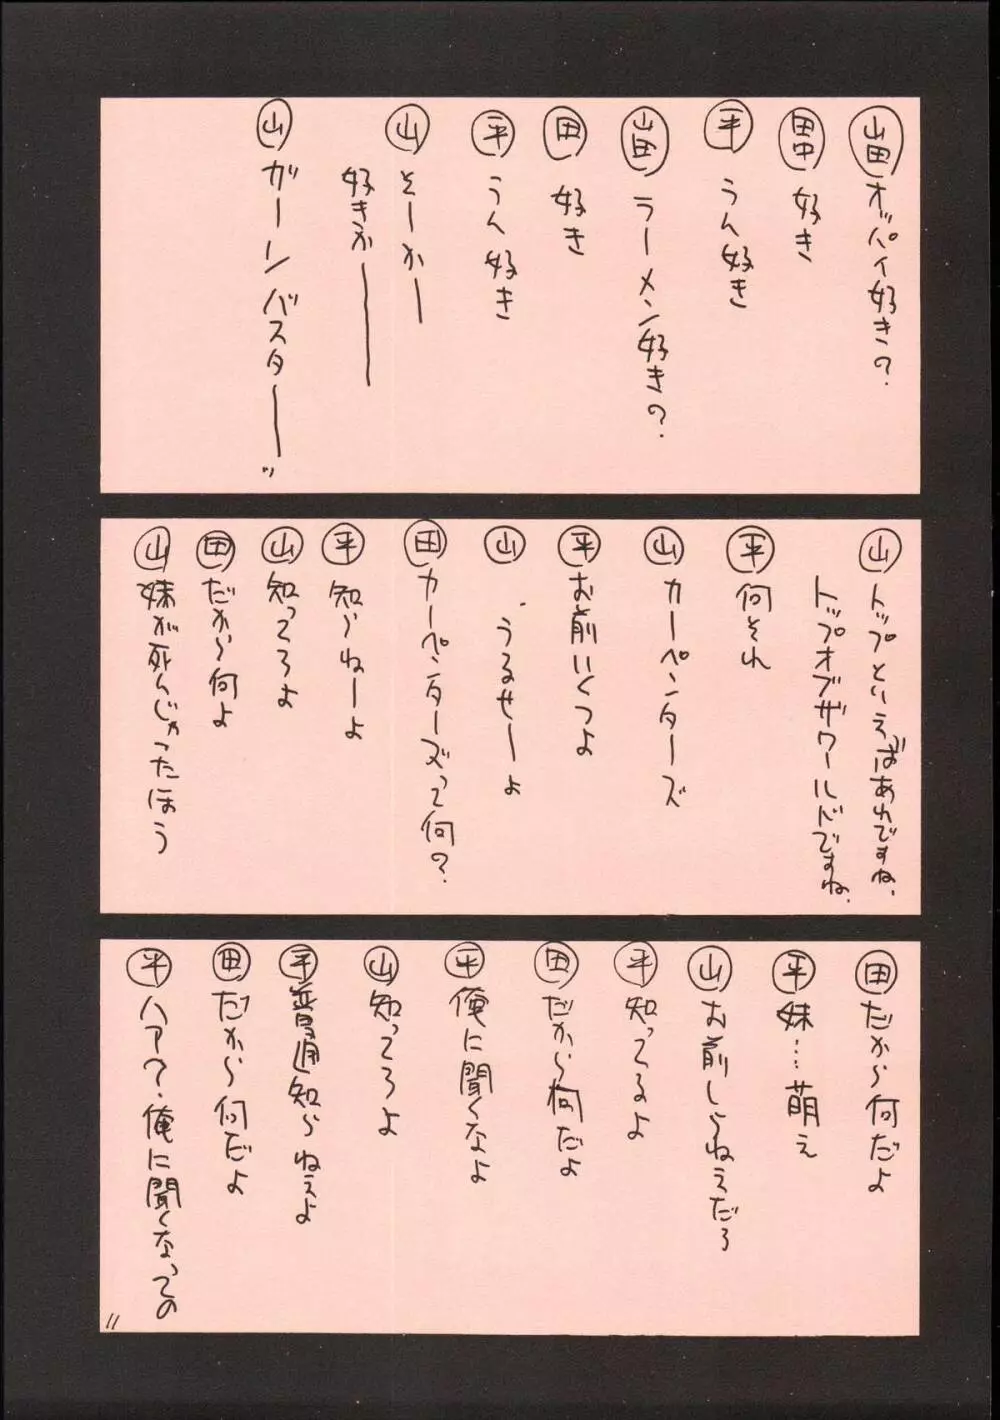 山田 オッパイ好きの?
田中 好き
平 うん好き
山田 ラーメン好きの?
田 好き
平 うん好き
山 そーかー
好きかー
山 ガーンバスター
山 トップといえばあれですね、
トップオブザワールドですね、
平 何それ
山 カーペンターズ
平 お前いくつよ
山 うるせーよ
田 カーペンターズって何?
平 知らねーよ
山 知ってろよ
田 だから何よ
山 妹が死んじゃったほう
田 だから何だよ
平 妹…萌え
山 お前しらねえだろ
平 知ってるよ
田 だから何だよ
平 俺に聞くなよ
山 知ってろよ
平 普通知らねえよ
田 だから何だよ
平 ハア?俺に聞くなっての
11